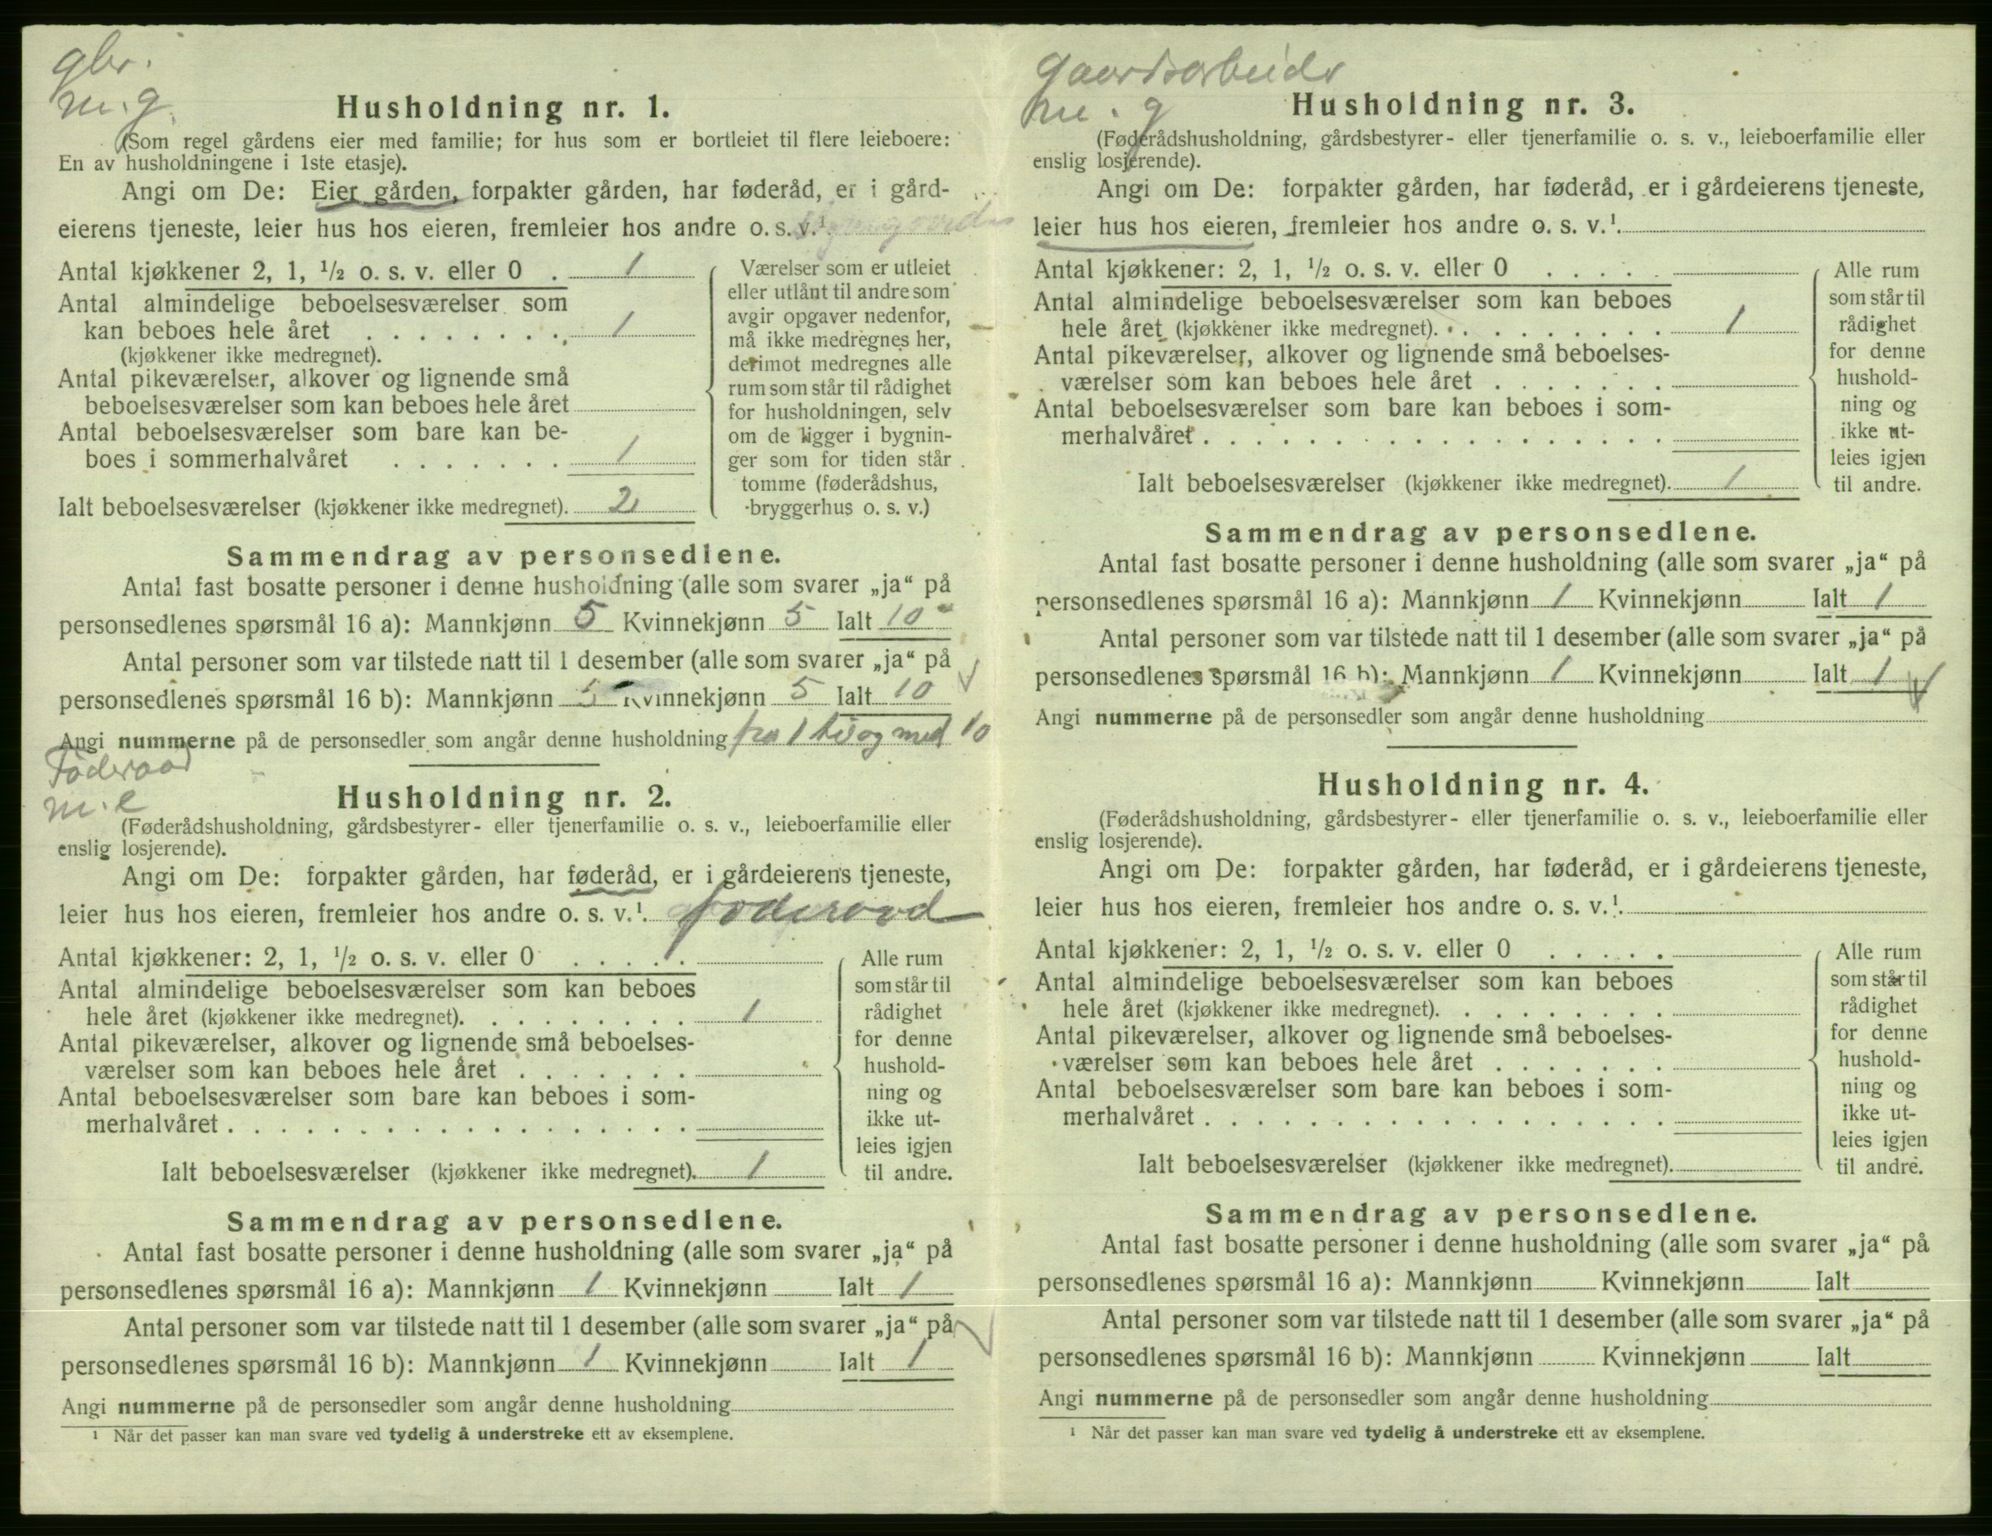 gbr.
m. g.
Husholdning nr. 1.
(Som regel gårdens eier med familie; for hus som er bortleiet til flere leieboere:
En av husholdningene i 1ste etasje).
Angi om De: Eier gården, forpakter gården, har føderåd, er i gård-
eierens tjeneste, leier hus hos eieren, fremleier hos andre o. s. v.¹
Antal kjøkkener 2, 1, ½ o. s. v. eller 0 . 1
Antal almindelige beboelsesværelser som
kan beboes hele året . . . . . . . . 1
(kjøkkener ikke medregnet).
Antal pikeværelser, alkover og lignende små
beboelsesværelser som kan beboes hele året
Antal beboelsesværelser som bare kan be-
boes i sommerhalvåret . . . . . . . 1
Ialt beboelsesværelser (kjøkkener ikke medregnet). 2
Værelser som er utleiet
eller utlånt til andre som
avgir opgaver nedenfor,
må ikke medregnes her,
derimot medregnes alle
rum som står til rådighet
for husholdningen, selv
om de ligger i bygnin-
ger som for tiden står
tomme (føderådshus,
bryggerhus o. s. v.)
Sammendrag av personsedlene.
Antal fast bosatte personer i denne husholdning (alle som svarer „ja“ på
personsedlenes spørsmål 16 a): Mannkjønn 5 Kvinnekjønn 5 Ialt 10
Antal personer som var tilstede natt til 1 desember (alle som svarer „ja“ på
personsedlenes spørsmål 16 b): Mannkjønn 5 Kvinnekjønn 5 Ialt 10
Angi nummerne på de personsedler som angår denne husholdning fra 1 til og med 10
Føderaad
m. e
Husholdning nr. 2.
(Føderådshusholdning, gårdsbestyrer- eller tjenerfamilie o. s. v., leieboerfamilie eller
enslig losjerende).
Angi om De: forpakter gården, har føderåd, er i gårdeierens tjeneste,
leier hus hos eieren, fremleier hos andre o. s. v.¹. føderaad
Antal kjøkkener: 2, 1, ½ o. s. v. eller 0 . . . . .
Antal almindelige beboelsesværelser som kan beboes
hele året (kjøkkener ikke medregnet). . . . . . . . . 1
Antal pikeværelser, alkover og lignende små beboelses-
værelser som kan beboes hele året . . . . . . .
Antal beboelsesværelser som bare kan beboes i som-
merhalvåret . . . . . . . . . . . . . . . . . .
Ialt beboelsesværelser (kjøkkener ikke medregnet). 1
Alle rum
som står til
rådighet
for denne
hushold-
ning og
ikke ut-
leies igjen
til andre.
Sammendrag av personsedlene.
Antal fast bosatte personer i denne husholdning (alle som svarer „ja“ på
personsedlenes spørsmål 16 a): Mannkjønn 1 Kvinnekjønn Ialt 1
Antal personer som var tilstede natt til 1 desember (alle som svarer „ja“ på
personsedlenes spørsmål 16 b): Mannkjønn 1 Kvinnekjønn Ialt 1
Angi nummerne på de personsedler som angår denne husholdning
¹ Når det passer kan man svare ved tydelig å understreke ett av eksemplene.
gaardsarbeide
m. g
Husholdning nr. 3.
(Føderådshusholdning, gårdsbestyrer- eller tjenerfamilie o. s. v., leieboerfamilie eller
enslig losjerende).
Angi om De: forpakter gården, har føderåd, er i gårdeierens tjeneste,
leier hus hos eieren, fremleier hos andre o. s. v.¹.
Antal kjøkkener: 2, 1, ½ o. s. v. eller 0 . . . . .
Antal almindelige beboelsesværelser som kan beboes
hele året (kjøkkener ikke medregnet). . . . . . . . . 1
Antal pikeværelser, alkover og lignende små beboelses-
værelser som kan beboes hele året . . . . . . .
Antal beboelsesværelser som bare kan beboes i som-
merhalvåret . . . . . . . . . . . . . . . . . .
Ialt beboelsesværelser (kjøkkener ikke medregnet). 1
Alle rum
som står til
rådighet
for denne
hushold-
ning og
ikke ut-
leies igjen
til andre.
Sammendrag av personsedlene.
Antal fast bosatte personer i denne husholdning (alle som svarer „ja“ på
personsedlenes spørsmål 16 a): Mannkjønn 1 Kvinnekjønn Ialt 1
Antal personer som var tilstede natt til 1 desember (alle som svarer „ja“ på
personsedlenes spørsmål 16 b): Mannkjønn 1 Kvinnekjønn Ialt 1
Angi nummerne på de personsedler som angår denne husholdning
Husholdning nr. 4.
(Føderådshusholdning, gårdsbestyrer- eller tjenerfamilie o. s. v., leieboerfamilie eller
enslig losjerende).
Angi om De: forpakter gården, har føderåd, er i gårdeierens tjeneste,
leier hus hos eieren, fremleier hos andre o. s. v.¹.
Antal kjøkkener: 2, 1, ½ o. s. v. eller 0 . . . . .
Antal almindelige beboelsesværelser som kan beboes
hele året (kjøkkener ikke medregnet). . . . . . . . .
Antal pikeværelser, alkover og lignende små beboelses-
værelser som kan beboes hele året . . . . . . .
Antal beboelsesværelser som bare kan beboes i som-
merhalvåret . . . . . . . . . . . . . . . . . .
Ialt beboelsesværelser (kjøkkener ikke medregnet).
Alle rum
som står til
rådighet
for denne
hushold-
ning og
ikke ut-
leies igjen
til andre.
Sammendrag av personsedlene.
Antal fast bosatte personer i denne husholdning (alle som svarer „ja“ på
personsedlenes spørsmål 16 a): Mannkjønn Kvinnekjønn Ialt
Antal personer som var tilstede natt til 1 desember (alle som svarer „ja“ på
personsedlenes spørsmål 16 b): Mannkjønn Kvinnekjønn Ialt
Angi nummerne på de personsedler som angår denne husholdning
¹ Når det passer kan man svare ved tydelig å understreke ett av eksemplene.